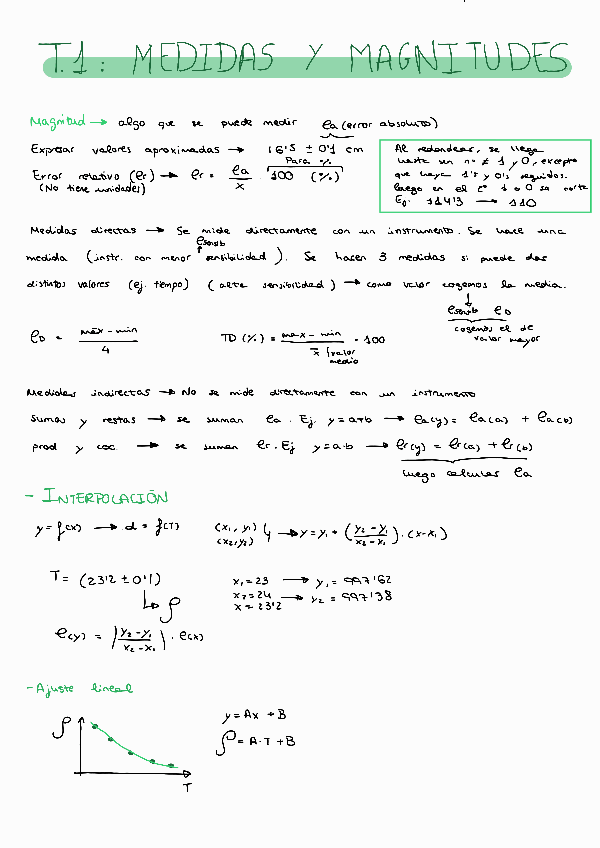 T.1: MEDIDAS Y MAGNITUDES
Magnitud → algo que se puede medir ea (error absoluto)
Expresar valores aproximados → 16'5 ± 0'1 cm
Error relativo (er) → er = ea / x · 100 (%) Para %
(No tiene unidades)
Al redondear, se llega
hasta un nº ≠ 1 y 0, excepto
que haya 1's y 0's seguidos.
luego en el 1 o 0 se corta
114'3 → 110
Medidas directas → Se mide directamente con un instrumento. Se hace una
medida (instr. con menor sensibilidad). Se hacen 3 medidas si puede dar
esensib
distintos valores (ej. tiempo) (alta sensibilidad) → como valor cogemos la media.
esensib eD
cogemos el de
valor mayor
eD = máx - min / 4
TD (%) = max - min / x̄ · 100
valor
medio
Medidas indirectas → No se mide directamente con un instrumento
Sumas y restas → se suman ea. Ej. y = a+b → ea(y) = ea(a) + ea(b)
prod y coc. → se suman er. Ej y = a·b → er(y) = er(a) + er(b)
luego calculas ea
- INTERPOLACIÓN
y = f(x) → d = f(T)
(x1, y1)
(x2, y2)
→ y = y1 + (y2 - y1 / x2 - x1) · (x - x1)
T = (23'2 ± 0'1)
ρ
x1 = 23 → y1 = 997'62
x2 = 24 → y2 = 997'38
x = 23'2
e(y) = |y2 - y1 / x2 - x1| · e(x)
- Ajuste lineal
ρ
T
y = Ax + B
ρ = A·T + B